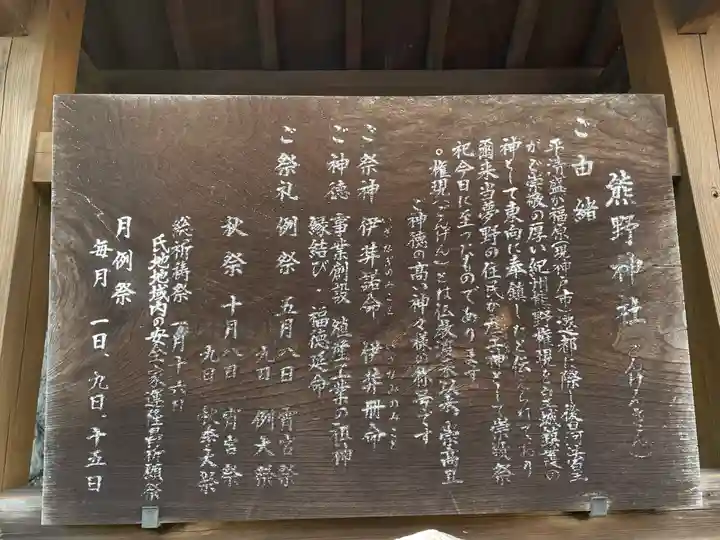 熊野神社（ごんげんさん）
ご由緒
平清盛が福原（現神戸市）遷都に際し後白河法皇
がご崇敬の厚い紀州熊野権現をこの城鎮護の
神として東向に奉鎮したと伝えられており
爾来当夢野の住民が産土神として崇敬祭
祀今日に至ったものであります
。権現（ごんげん）とは伝最崇高且
ご神徳の高い神々様の称号です
ご祭神 伊弉諾命 伊弉冊命
いざなぎのみこと いざなみのみこと
ご神徳 事業創設 殖産工業の祖神
縁結び・福徳延命
ご祭礼 例祭 五月八日 宵宮祭
九日 例大祭
秋祭 十月八日 宵宮祭
九日 秋季大祭
総祈祷祭 一月十六日
氏地地域内の安全、家運隆昌祈願祭
月例祭
毎月 一日、九日、十五日